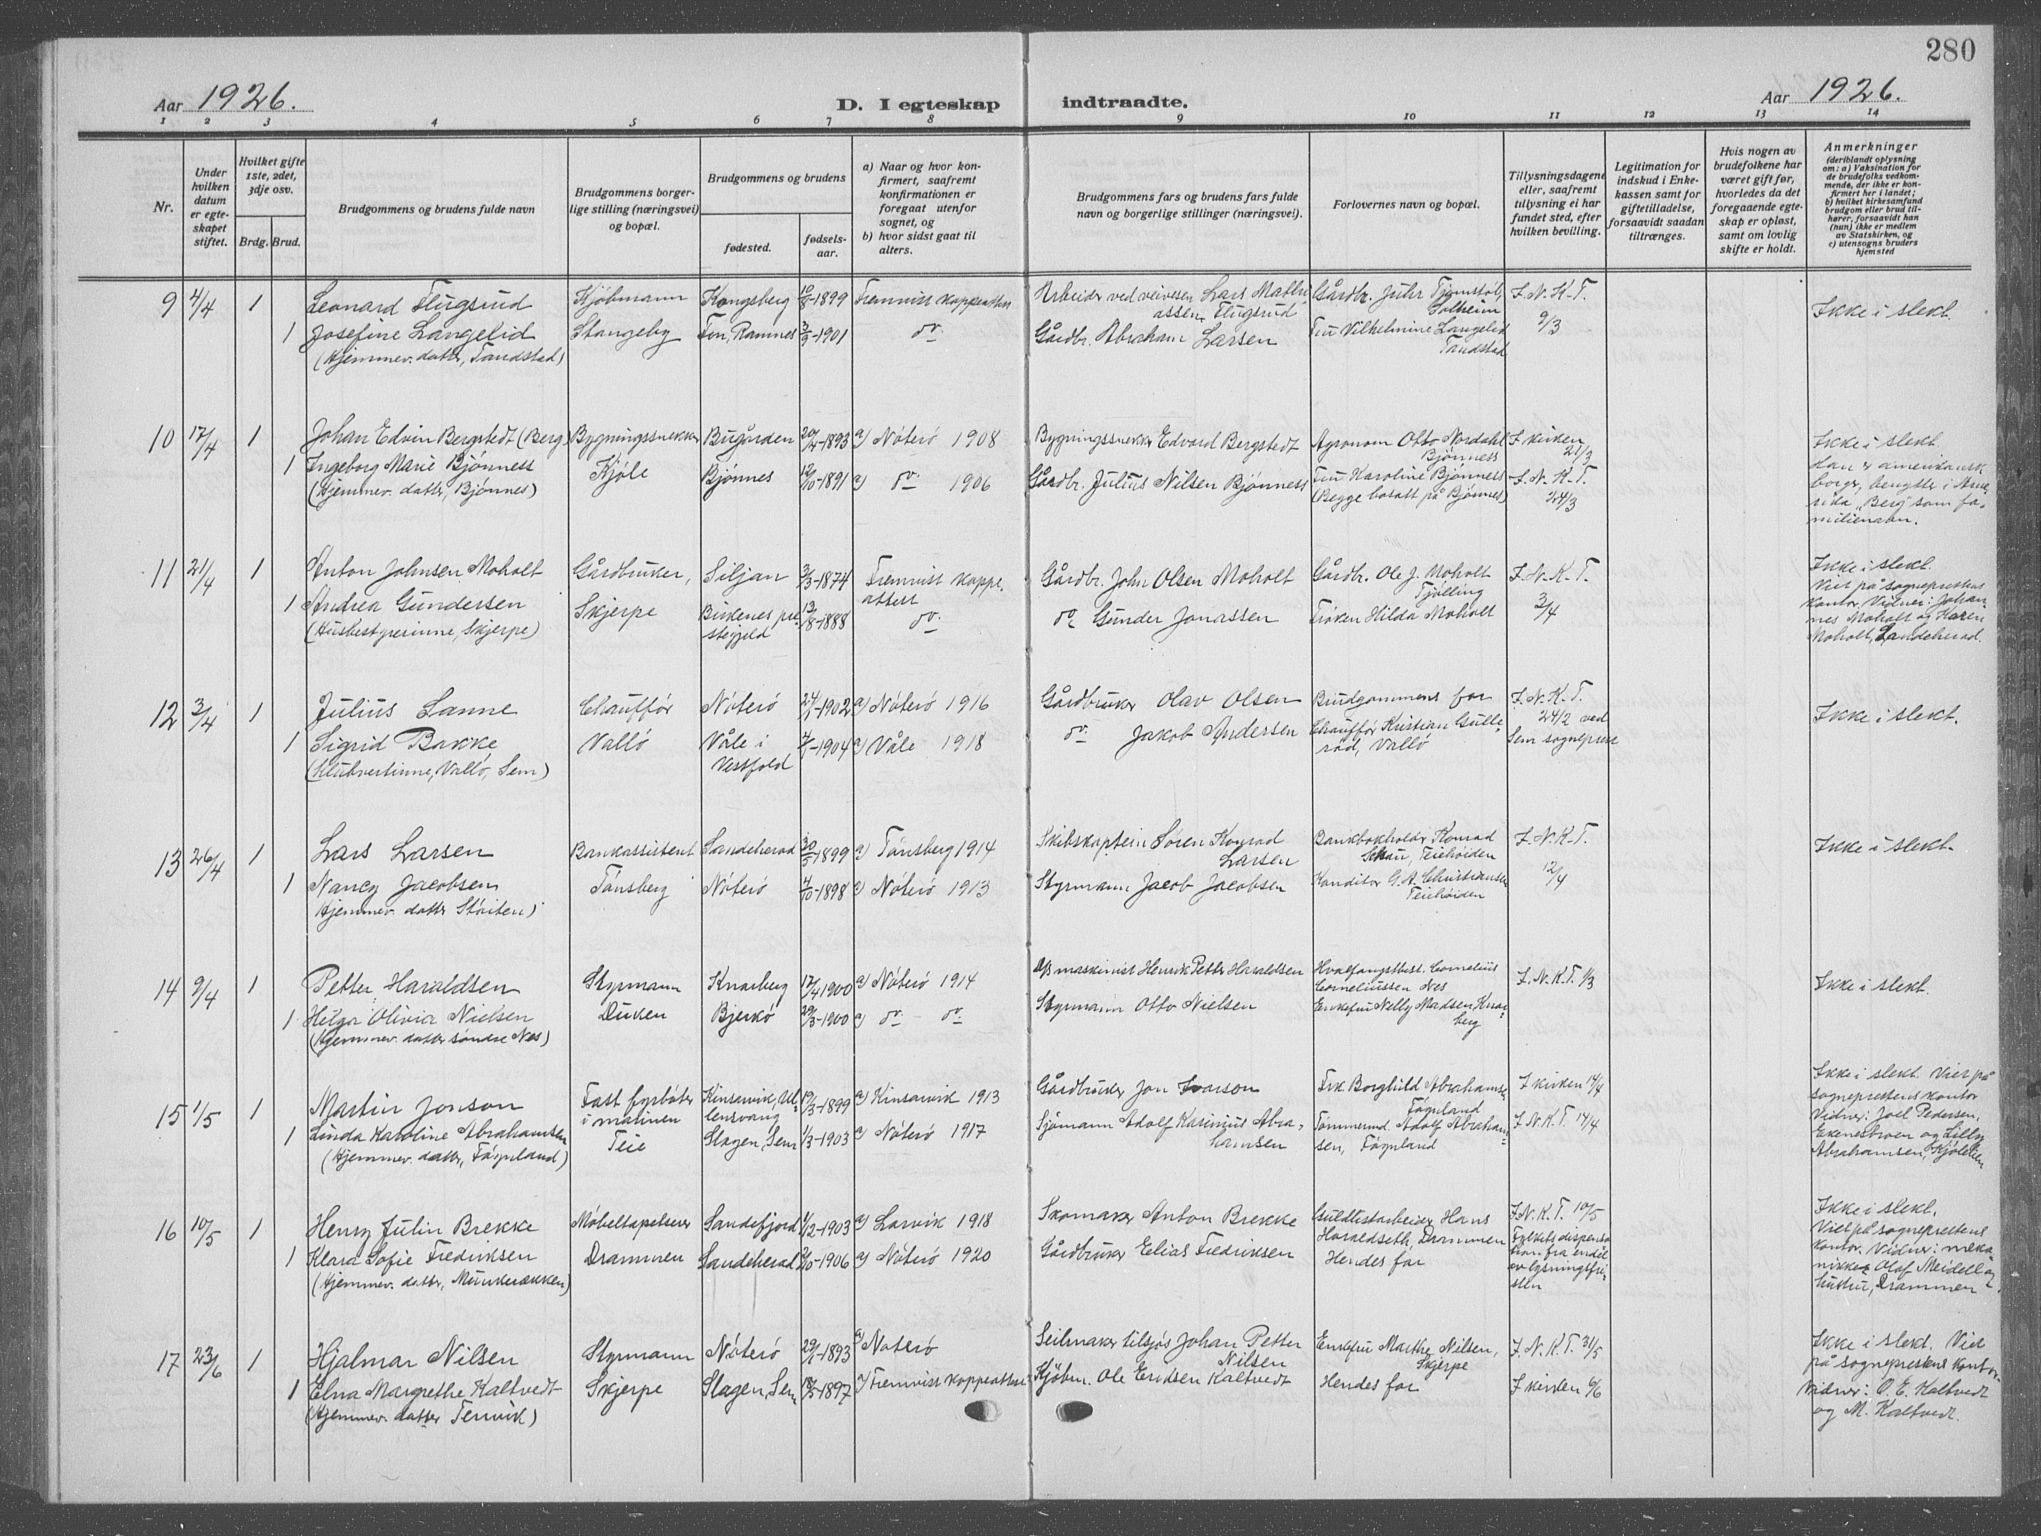 280
Aar 1926.
D. I egteskap indtraadte.
Aar 1926.
1 2 3 4 5 6 7 8 9 10 11 12 13 14
Nr.
Under hvilken datum er egteskapet stiftet.
Hvilket gifte 1ste, 2det, 3dje osv.
Brdg. Brud.
Brudgommens og brudens fulde navn
Brudgommens borgerlige stilling (næringsvei) og bopæl.
Brudgommens og brudens
fødested.
fødselsaar.
a) Naar og hvor konfirmert, saafremt konfirmationen er foregaat utenfor sognet, og
b) hvor sidst gaat til alters.
Brudgommens fars og brudens fars fulde navn og borgerlige stillinger (næringsvei).
Forlovernes navn og bopæl.
Tillysningsdagene eller, saafremt tillysning ei har fundet sted, efter hvilken bevilling.
Legitimation for indskud i Enkekassen samt for giftetilladelse, forsaavidt saadan tiltrænges.
Hvis nogen av brudefolkene har været gift før, hvorledes da det foregaaende egteskap er opløst, samt om lovlig skifte er holdt.
Anmerkninger
(deriblandt oplysning om: a) Vaksination for de brudefolks vedkommende, der ikke er konfirmert her i landet; b) hvilket kirkesamfund brudgom eller brud tilhører, forsaavidt han (hun) ikke er medlem av Statskirken, og c) utensogns bruders hjemsted
9 4/4 1 Leonard Flugsrud Kjøbmann Kongsberg 10/8-1899 Fremvist koppeattest Arbeider ved veivesen Lars Mathiassen Flugsrud Gårdbr. Juhr Tjomstøl, Solheim I. N. K. T. 9/3 Ikke i slekt.
1 Josefine Langelid Stangeby Fon, Ramnes 3/3-1901 do Gårdbr. Abraham Larsen Fru Vilhelmine Langelid Tandstad
(Hjemmev. datter, Tandstad)
10 17/4 1 Johan Edvin Bergstedt (Berg) Bygningssnekker Bugården 20/4-1893 a) Nøterø 1908 Bygningssnekker Edvard Bergstedt Agronom Otto Nordahl Bjønness I kirken 21/3 Ikke i slekt.
1 Ingeborg Marie Bjønness Kjøle Bjønnes 12/10-1891 a) do 1906 Gårdbr. Julius Nilsen Bjønness Fru Karoline Bjønness I. N. K. T. 24/3 Han er amerikansk
(Hjemmev. datter, Bjønnes) (Begge bosatt på Bjønnes) borger, benytter i Amerika "Berg" som familienavn.
11 21/4 1 Anton Johnsen Moholt Gårdbruker, Siljan 3/3-1874 Fremvist koppeattest Gårdbr. John Olsen Moholt Gårdbr. Ole J. Moholt Tjølling I. N. K. T. 3/4 Ikke i slekt.
1 Andrea Gundersen Skjerpe Birkenes prestegjeld 13/8-1888 do do Gunder Jonassen Frøken Hilda Moholt Viet på sogneprestens kontor. Vidner: Johannes Moholt og Karen Moholt, Sandeherad.
(Husbestyrerinne, Skjerpe)
12 3/4 1 Julius Sanne Chauffør Nøterø 24/1-1902 a) Nøterø 1916 Gårdbruker Olav Olsen Brudgommens far I. N. K. T. 24/2 ved Sem sogneprest Ikke i slekt.
1 Sigrid Bakke Vallø Våle i Vestfold 7/1-1904 a) Våle 1918 do Jakob Andersen Chauffør Kristian Gullerød, Vallø
(Klubvertinne, Vallø, Sem)
13 26/4 1 Lars Larsen Bankassistent Sandeherad 30/5-1899 a) Tønsberg 1914 Skibskaptein Søren Konrad Larsen Bankbokholder Konrad Schau, Teiehøiden I. N. K. T. 12/4 Ikke i slekt.
1 Nancy Jacobsen Tønsberg Nøterø 4/10-1898 a) Nøterø 1913 Styrmann Jacob Jacobsen Konditor G. A. Christiansen Teiehøiden
(Hjemmev. datter Støiten)
14 9/4 1 Petter Haraldsen Styrmann Knarberg 17/4-1900 a) Nøterø 1914 D/S maskinist Henrik Petter Haraldsen Hvalfangstbest. Cornelius Corneliussen Nes I. N. K. T. 1/3 Ikke i slekt.
1 Helga Olivia Nielsen Duken Bjerkø 29/3-1900 a) do do Styrmann Otto Nielsen Enkefru Nelly Madsen Knarberg
(Hjemmev. datter søndre Nes)
15 1/5 1 Martin Jonson Fast fyrbøter i marinen Kinsarvik, Ullensvang 19/3-1899 a) Kinsarvik 1913 Gårdbruker Jon Ivarson Frk Borghild Abrahamsen Føynland I kirken 14/4 Ikke i slekt. Viet på
1 Linda Karoline Abrahamsen Teie Slagen, Sem 1/3-1903 a) Nøterø 1917 Sjømann Adolf Kasimus Abrahamsen Tømmermd. Adolf Abrahamsen, Føynland I. N. K. T. 14/4 sogneprestens kontor Vidner: Joel Pedersen, Ekenesbroen og Lilly Abrahamsen, Kjøleien
(Hjemmev. datter, Føynland)
16 10/5 1 Henry Julin Brekke Møbeltapetserer Sandefjord 1/12-1903 a) Larvik 1918 Skomaker Anton Brekke Gullistarbeider Hans Haraldseth, Drammen I. N. K. T. 10/5 Ikke i slekt.
1 Klara Sofie Fredriksen Drammen Sandeherad 2/10-1906 a) Nøterø 1920 Gårdbruker Elias Fredriksen Hendes far Fylkets dispensasjon fra endel av lysningsfristen Viet på sogneprestens kontor. Vidner: mekaniker Olaf Meidell og hustru, Drammen
(Hjemmev. datter, Munkerekken)
17 23/6 1 Hjalmar Nilsen Styrmann Nøterø 29/1-1893 a) Nøterø Seilmaker tilsjøs Johan Petter Nilsen Enkefru Marthe Nilsen, Skjerpe I. N. K. T. 31/5 Ikke i slekt. Viet
1 Elna Margrethe Kaltvedt Skjerpe Slagen, Sem -1897 Fremvist koppeattest Kjøbm. Ole Eriksen Kaltvedt Hendes far I kirken 6/6 på sogneprestens kontor. Vidner: O. E. Kaltvedt og M. Kaltvedt.
(Hjemmev. datter Tenvik)